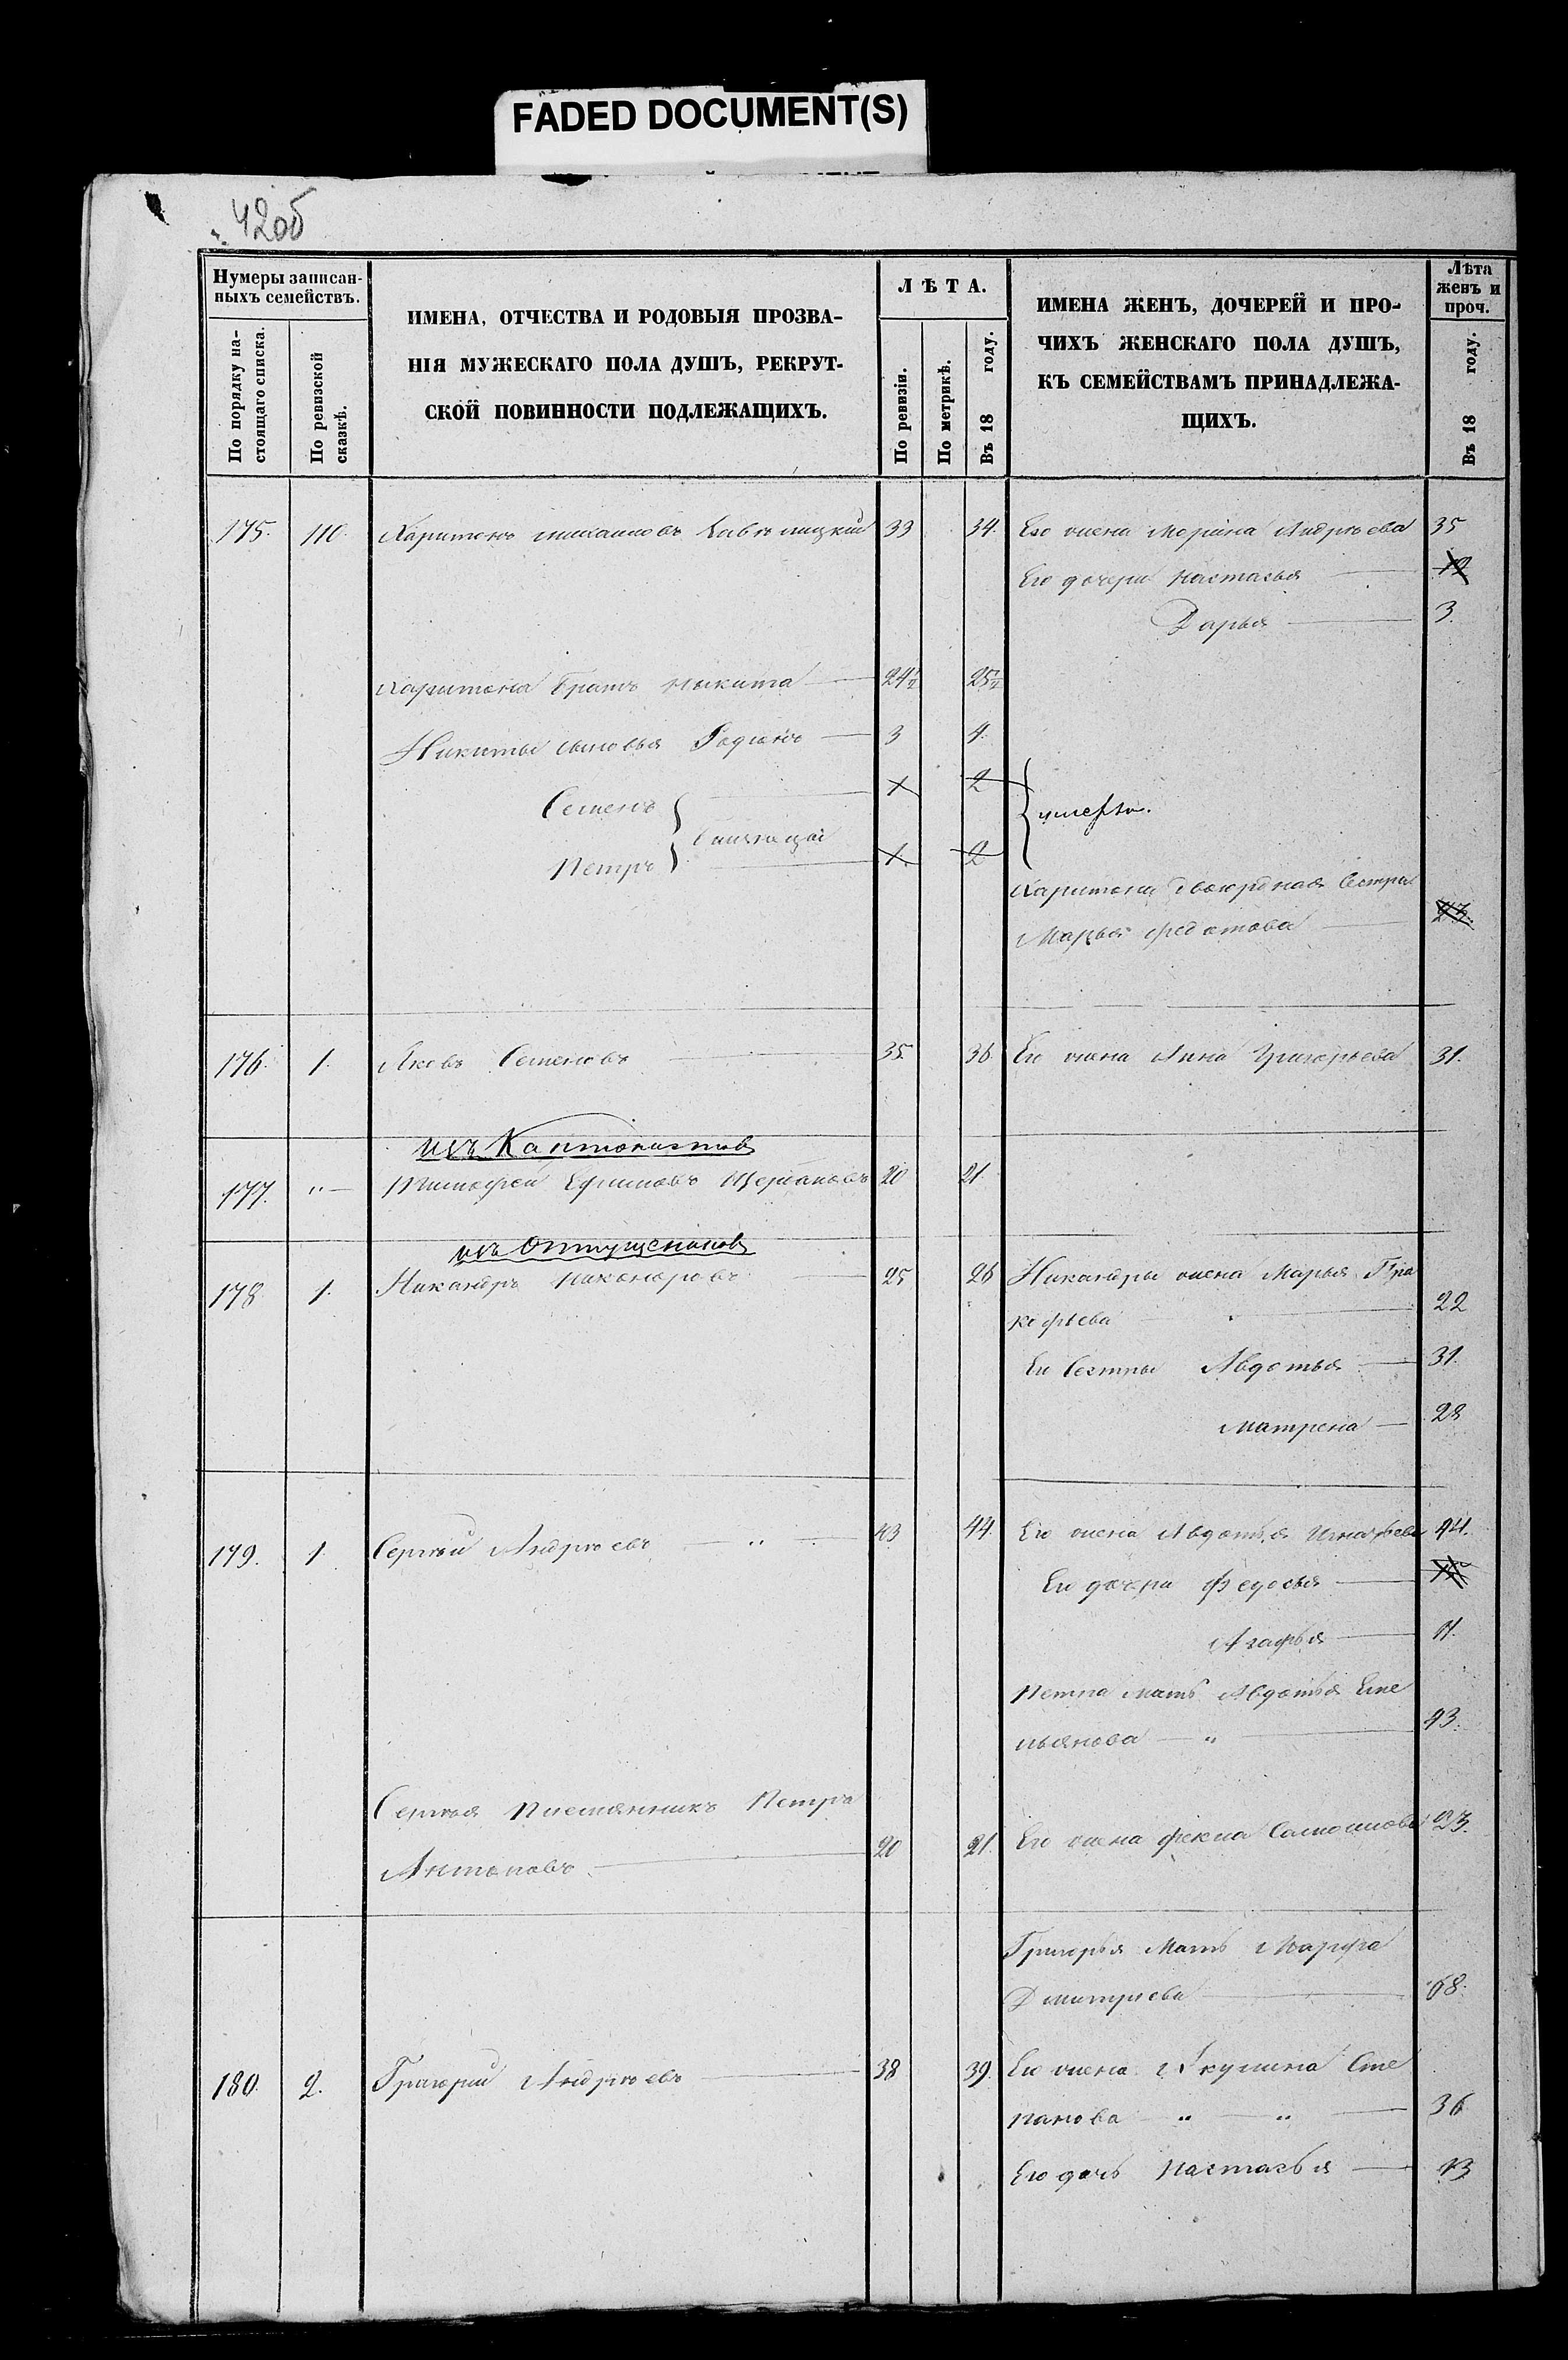 FADED DOCUMENT(S)
42об
Нумеры записан-
ныхъ семействъ.
По порядку на-
стоящаго списка.
По ревизской
сказкѣ.
ИМЕНА, ОТЧЕСТВА И РОДОВЫЯ ПРОЗВА-
НІЯ МУЖЕСКАГО ПОЛА ДУШЪ, РЕКРУТ-
СКОЙ ПОВИННОСТИ ПОДЛЕЖАЩИХЪ.
ЛѢТА.
По ревизіи.
По метрикѣ.
Въ 18 году.
ИМЕНА ЖЕНЪ, ДОЧЕРЕЙ И ПРО-
ЧИХЪ ЖЕНСКАГО ПОЛА ДУШЪ,
КЪ СЕМЕЙСТВАМЪ ПРИНАДЛЕЖА-
ЩИХЪ.
Лѣта
женъ и
проч.
Въ 18 году.
175. 110. Харитонъ Михаиловъ 33 34. Его жена Марина Андрѣева 35
Его дочери Настасья 12
Дарья 3.
Харитона братъ Никита 24½ 25½
Никиты сыновья Родіонъ 3 4.
Семенъ 1 2
умерли.
близнецы
Петръ 1. 2
Харитона двоюрдная Сестра
Марья Федотова 23.
176. 1. Яковъ Семеновъ 35. 36. Его жена Анна Григорьева 31.
изъ Кантонистов
177. " Тимофей Ефимовъ 20 21.
изъ Отпущенниковъ
178 1. Никандръ Никаноровъ 25 26 Никандры жена Марья Пра
кофьева 22
Ея Сестры Авдотья 31.
Матрена 28
179. 1. Сергѣй Андрѣевъ " 43 44. Его жена Авдотья Игнатьева 44.
Ея дочери Федосья
Агафья 11.
Петра мать Авдотья Еме
льянова " 43.
Сергѣя племянникъ Петръ
Антоновъ 20 21. Его жена Фекла Самоилова 23.
Григорья мать Марфа
Дмитріева 68.
180. 2. Григорий Андрѣевъ 38 39. Ево жена Акулина Сте
панова " " 36
Его дочь Настасья 13